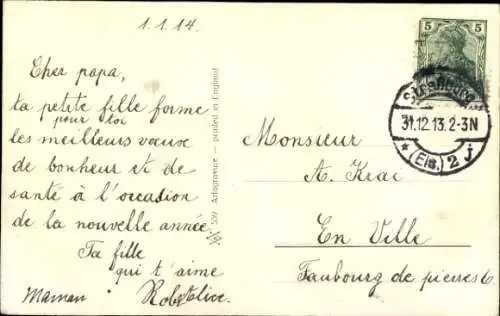 1.1.14.
Cher papa,
ta petite fille forme
pour toi
les meilleurs vœux
de bonheur et de
santé à l'occasion
de la nouvelle année.
Ta fille
qui t'aime
Maman
559 Artogravure — printed in England
5 5
31.12.13.2-3N
* (Els.) 2 j
Monsieur
A. Krai
En Ville
Faubourg de pierres 6